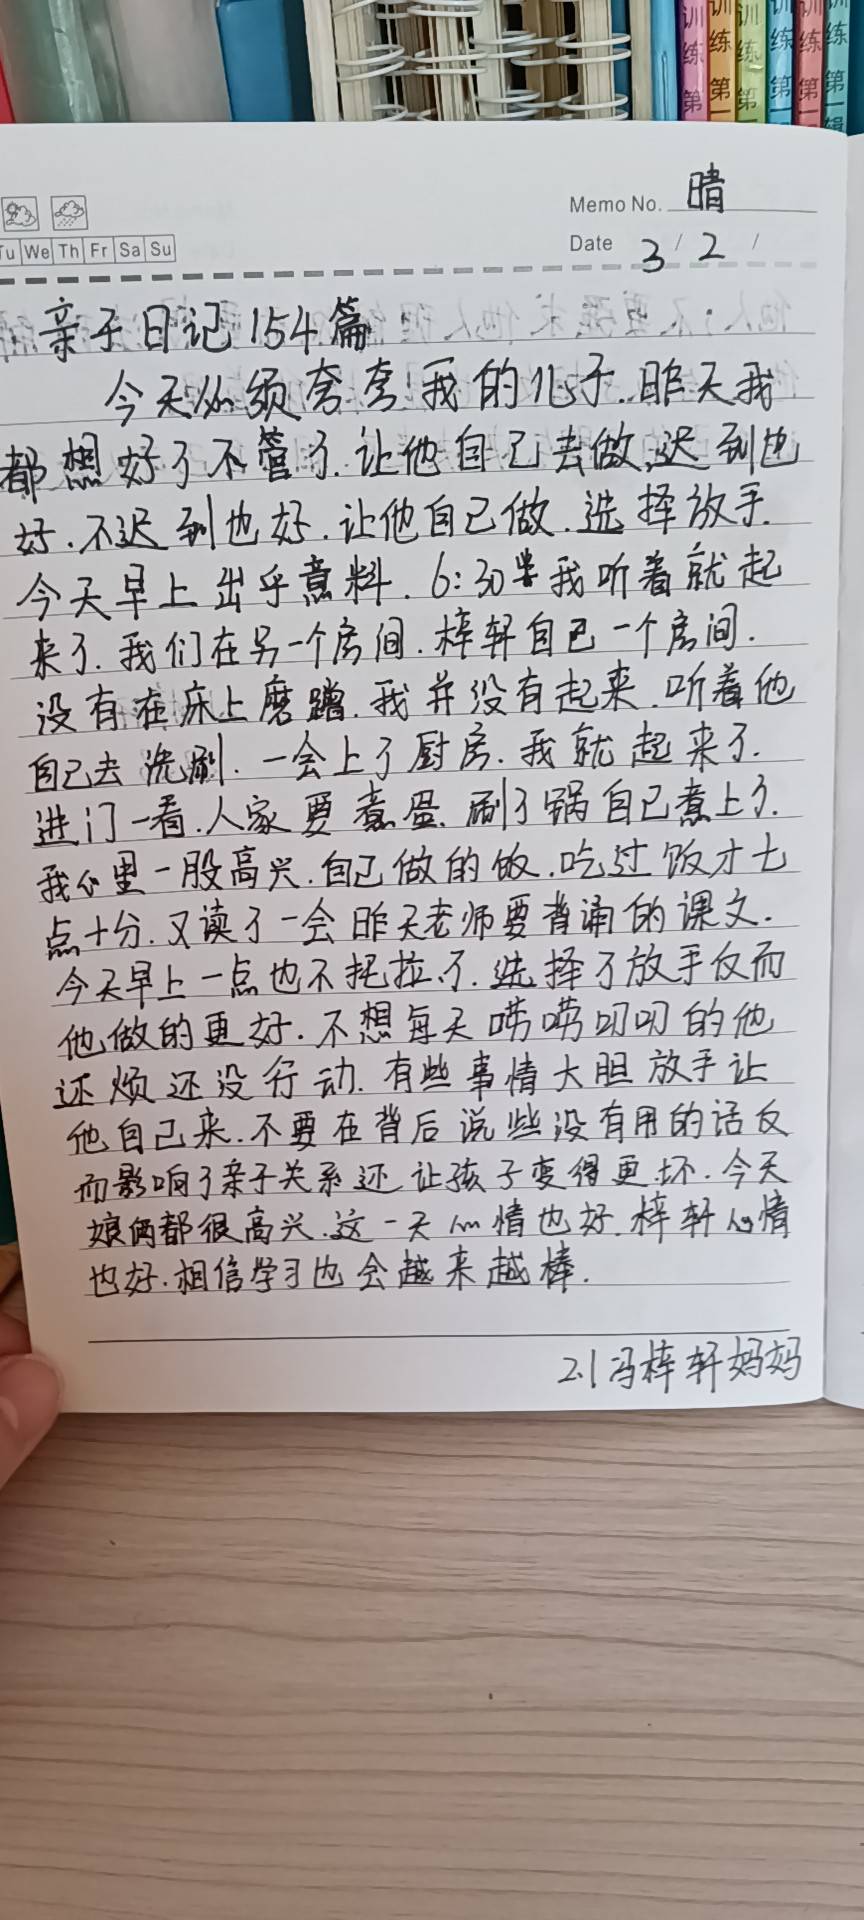 训练 第一
训练 第一
训练 第一
训练 第一
训练 第一
训练 第一辑
Memo No. 晴
Tu We Th Fr Sa Su
Date 3 / 2 /
亲子日记154篇
今天必须夸夸我的儿子.昨天我
都想好了不管了.让他自己去做,迟到也
好.不迟到也好.让他自己做.选择放手.
今天早上出乎意料.6:30我听着就起
来了.我们在另一个房间.梓轩自己一个房间.
没有在床上磨蹭.我并没有起来.听着他
自己去洗刷.一会上了厨房.我就起来了.
进门一看.人家要煮蛋.刷了锅自己煮上了.
我心里一股高兴.自己做的饭.吃过饭才七
点十分.又读了一会昨天老师要背诵的课文.
今天早上一点也不拖拉了.选择了放手反而
他做的更好.不想每天唠唠叨叨的他
还烦还没行动.有些事情大胆放手让
他自己来.不要在背后说些没有用的话反
而影响了亲子关系还让孩子变得更坏.今天
娘俩都很高兴.这一天心情也好.梓轩心情
也好.相信学习也会越来越棒.
2.1冯梓轩妈妈